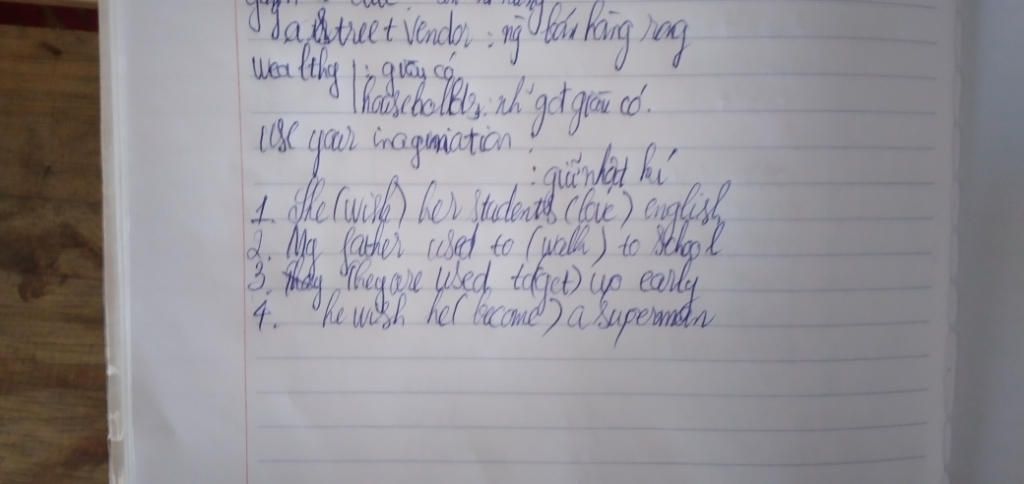 a street vendor : ng bán hàng rong
wealthy : giàu có
households : nh~ gđ giàu có.
use your inagination :
: giữ nhật kí
1. She (wish) her students (love) english
2. My father used to (walk) to school
3. They are used to(get) up early
4. he wish he (become) a superman